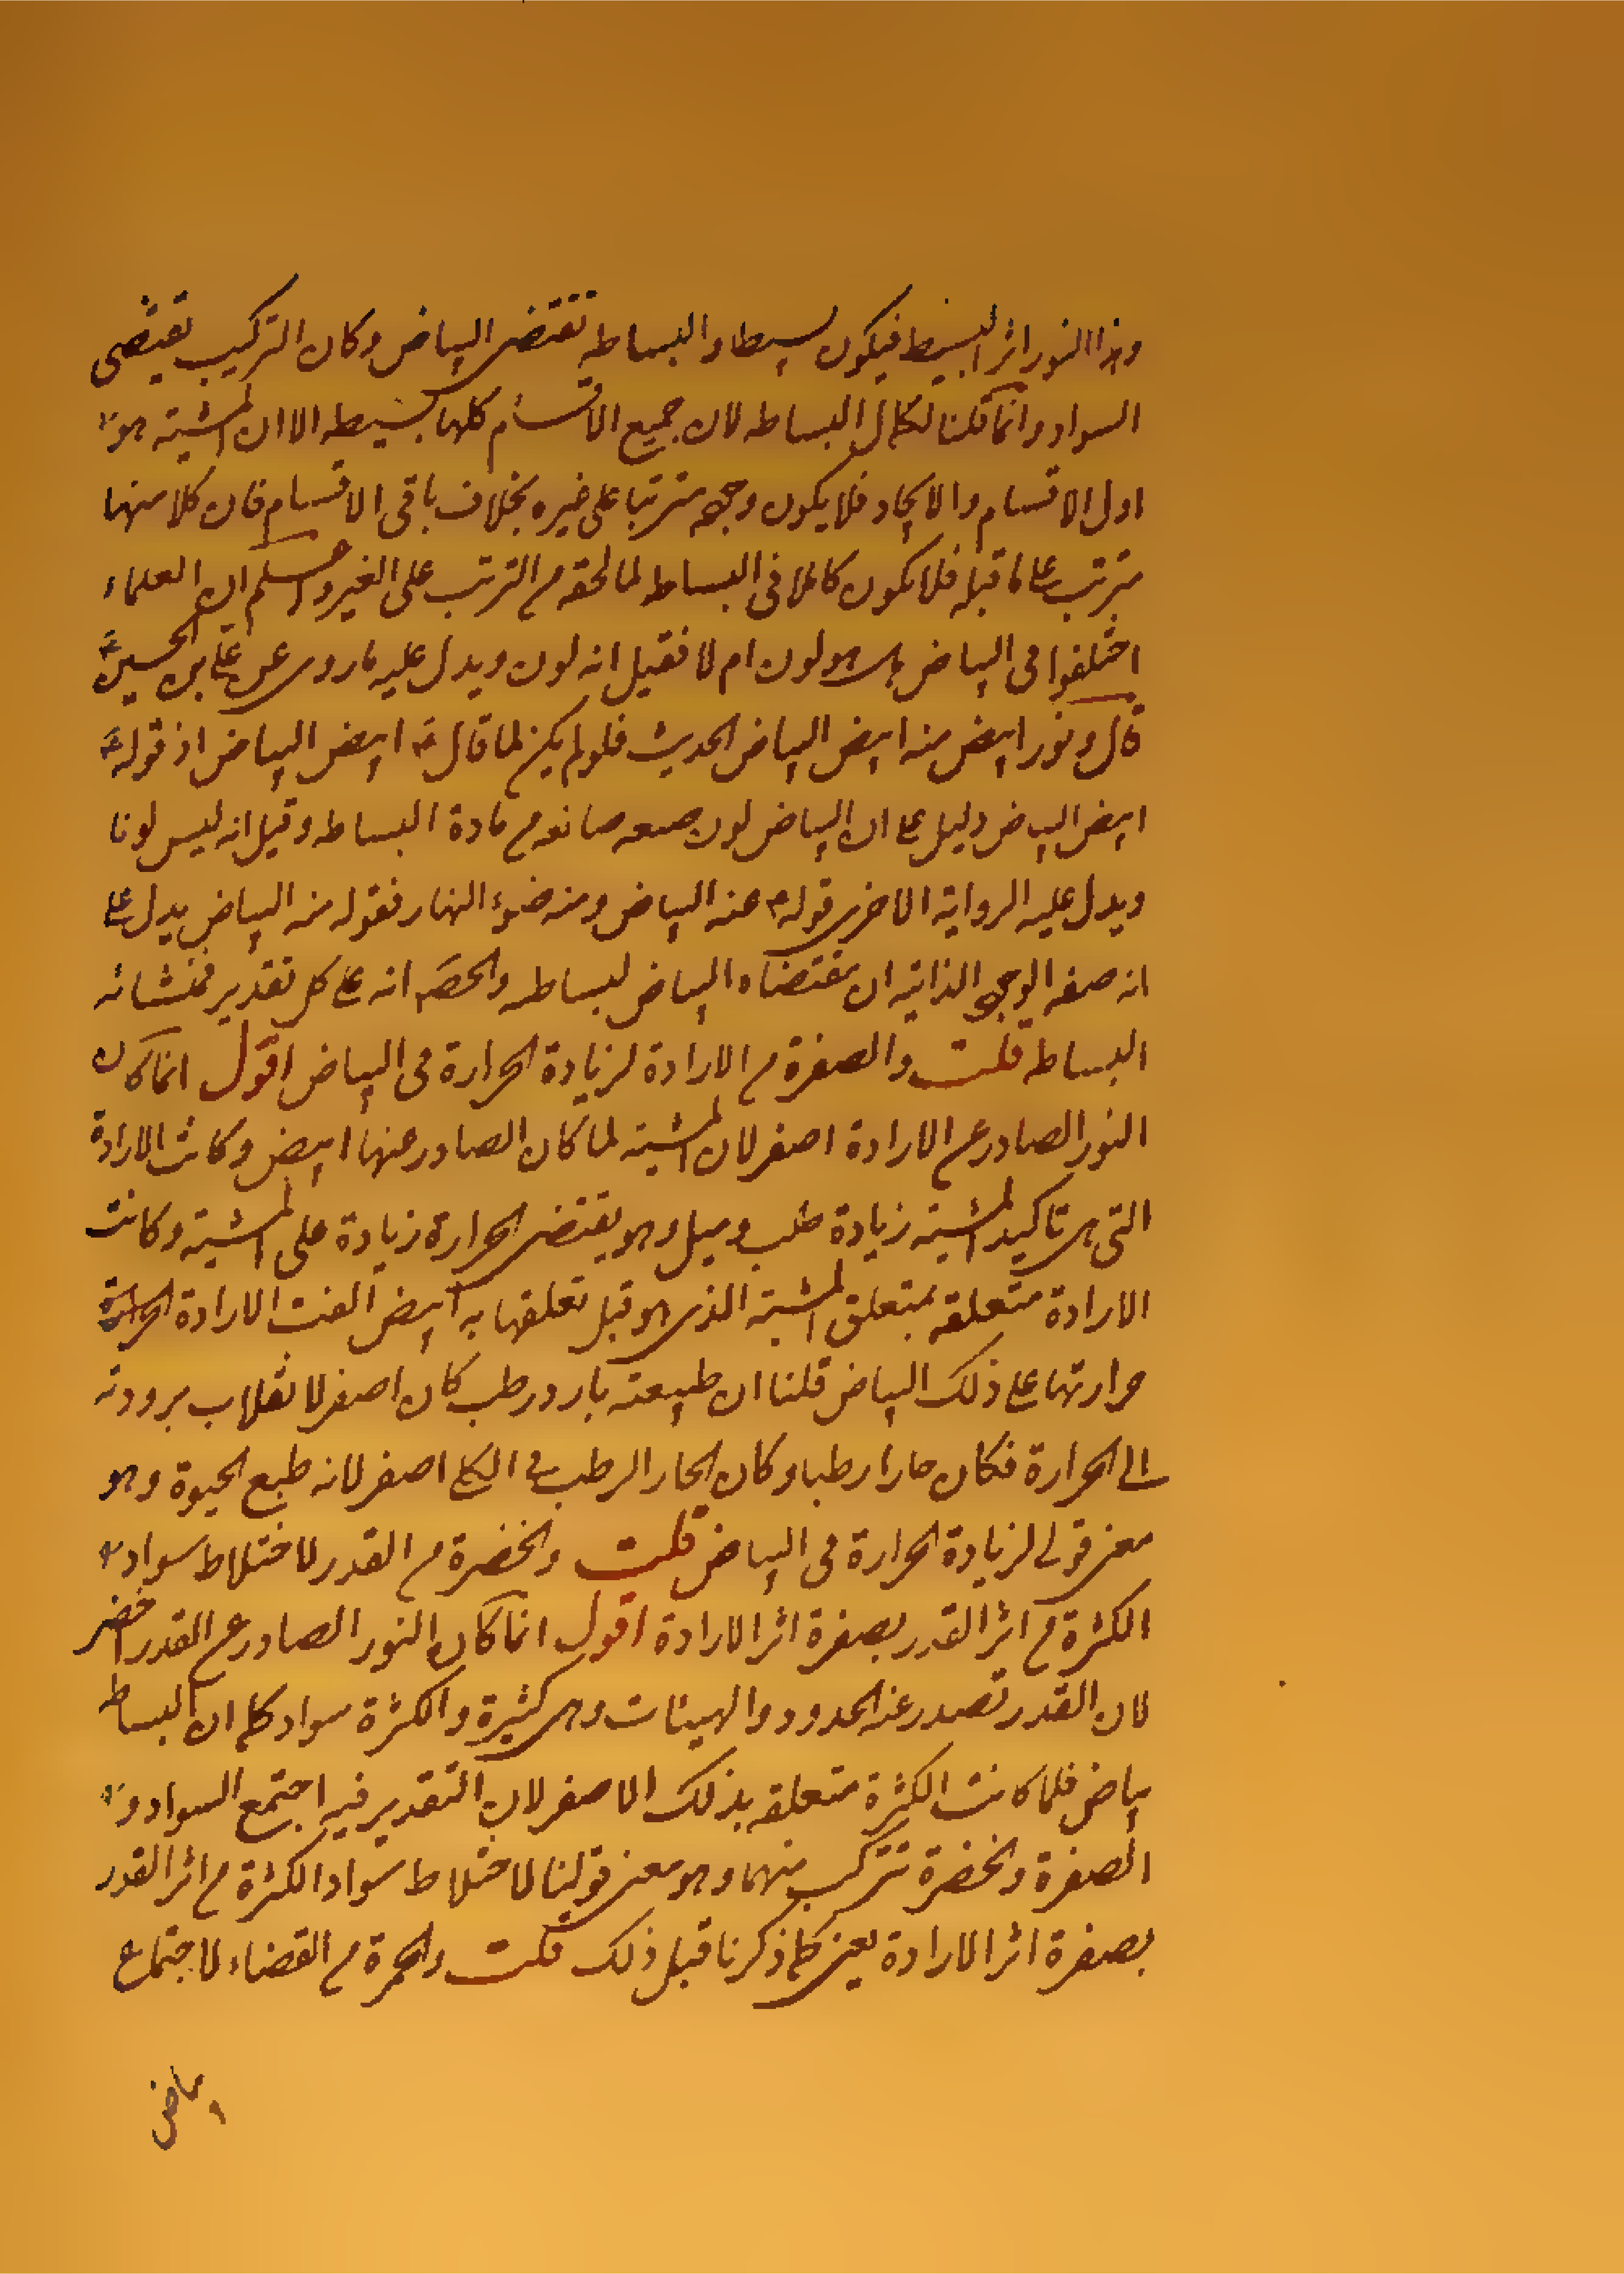 وهذا النور اثر البسيط فيكون بسيطا والبساطه تقتضى البياض وكان التركيب يقتضى
السواد وانما قلنا لكمال البساطه لان جميع الاقسام كلها بسيطه الا ان المشية هو
اول الاقسام والايجاد فلا يكون وجوده مترتبا على غيره بخلاف باقى الاقسام فان كلا منها
مترتب على ما قبله فلا يكون كاملا فى البساطه لما لحقه من الترتب على الغير واعلم ان العلماء
اختلفوا فى البياض هل هو لون ام لا فقيل انه لون ويدل عليه ما روى عن على بن الحسين ع
قال ونور ابيض منه ابيض البياض الحديث فلو لم يكن لما قال ع ابيض البياض اذ قوله ع
ابيض البياض دليل على ان البياض لون صبغه صانعه من مادة البساطه وقيل انه ليس لونا
ويدل عليه الرواية الاخرى قوله ع منه البياض ومنه ضوء النهار فقوله منه البياض يدل على
انه صفه الوجود الذاتيه ان مقتضاه البياض لبساطه والحصم انه على كل تقدير فمنشائه
البساطه قلت والصفرة من الارادة لزيادة الحرارة فى البياض اقول انما كان
النور الصادر عن الارادة اصفر لان المشية لما كان الصادر عنها ابيض وكانت الارادة
التى هى تاكيد المشية زيادة طلب وميل وهو يقتضى الحرارة زيادة على المشية وكانت
الارادة متعلقه بمتعلق المشية الذى هو قبل تعلقها به ابيض القت الارادة الحرارة
حرارتها على ذلك البياض قلنا ان طبيعته بارد رطب كان اصفر لانقلاب برودته
الى الحرارة فكان حارا رطبا وكان الحار الرطب فى الكل اصفر لانه طبع الحيوة وهو
معنى قولى لزيادة الحرارة فى البياض قلت والخضرة من القدر لاختلاط سواد
الكثرة من اثر القدر بصفرة اثر الارادة اقول انما كان النور الصادر عن القدر اخضر
لان القدر تصدر عنه الحدود والهيئات وهى كثيرة والكثرة سواد كما ان البساطه
بياض فلما كانت الكثرة متعلقه بذلك الاصفر لان التقدير فيه اجتمع السواد و
الصفرة والخضرة تتركب منهما وهو معنى قولنا لاختلاط سواد الكثرة من اثر القدر
بصفرة اثر الارادة يعنى كما ذكرنا قبل ذلك قلت والحمرة من القضاء لاجتماع
بياض